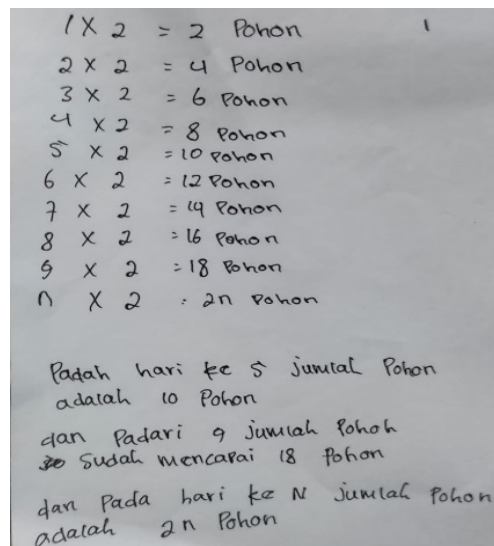 1 X 2 = 2 Pohon
2 X 2 = 4 Pohon
3 X 2 = 6 Pohon
4 X 2 = 8 Pohon
5 X 2 = 10 Pohon
6 X 2 = 12 Pohon
7 X 2 = 14 Pohon
8 X 2 = 16 Pohon
9 X 2 = 18 Pohon
n X 2 . 2n Pohon
Padah hari ke 5 jumlah Pohon
adalah 10 Pohon
dan Padari 9 jumlah Pohoh
sudah mencapai 18 Pohon
dan Pada hari ke N jumlah Pohon
adalah 2n Pohon